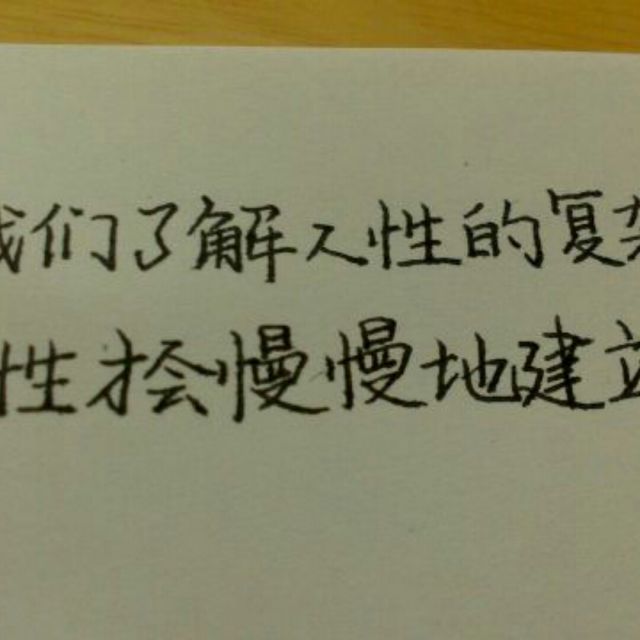 我们了解人性的复杂
性才会慢慢地建立